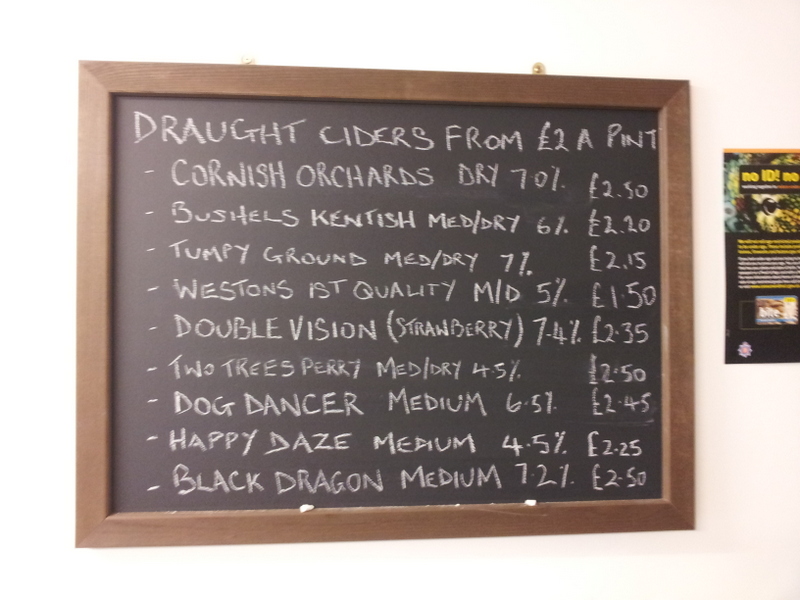 DRAUGHT CIDERS FROM £2 A PINT
- CORNISH ORCHARDS DRY 7.0% £2.50
- BUSHELS KENTISH MED/DRY 6% £2.20
- TUMPY GROUND MED/DRY 7% £2.15
- WESTONS 1ST QUALITY M/D 5% £1.50
- DOUBLE VISION (STRAWBERRY) 7.4% £2.35
- TWO TREES PERRY MED/DRY 4.5% £2.50
- DOG DANCER MEDIUM 6.5% £2.45
- HAPPY DAZE MEDIUM 4.5% £2.25
- BLACK DRAGON MEDIUM 7.2% £2.50
no ID! no